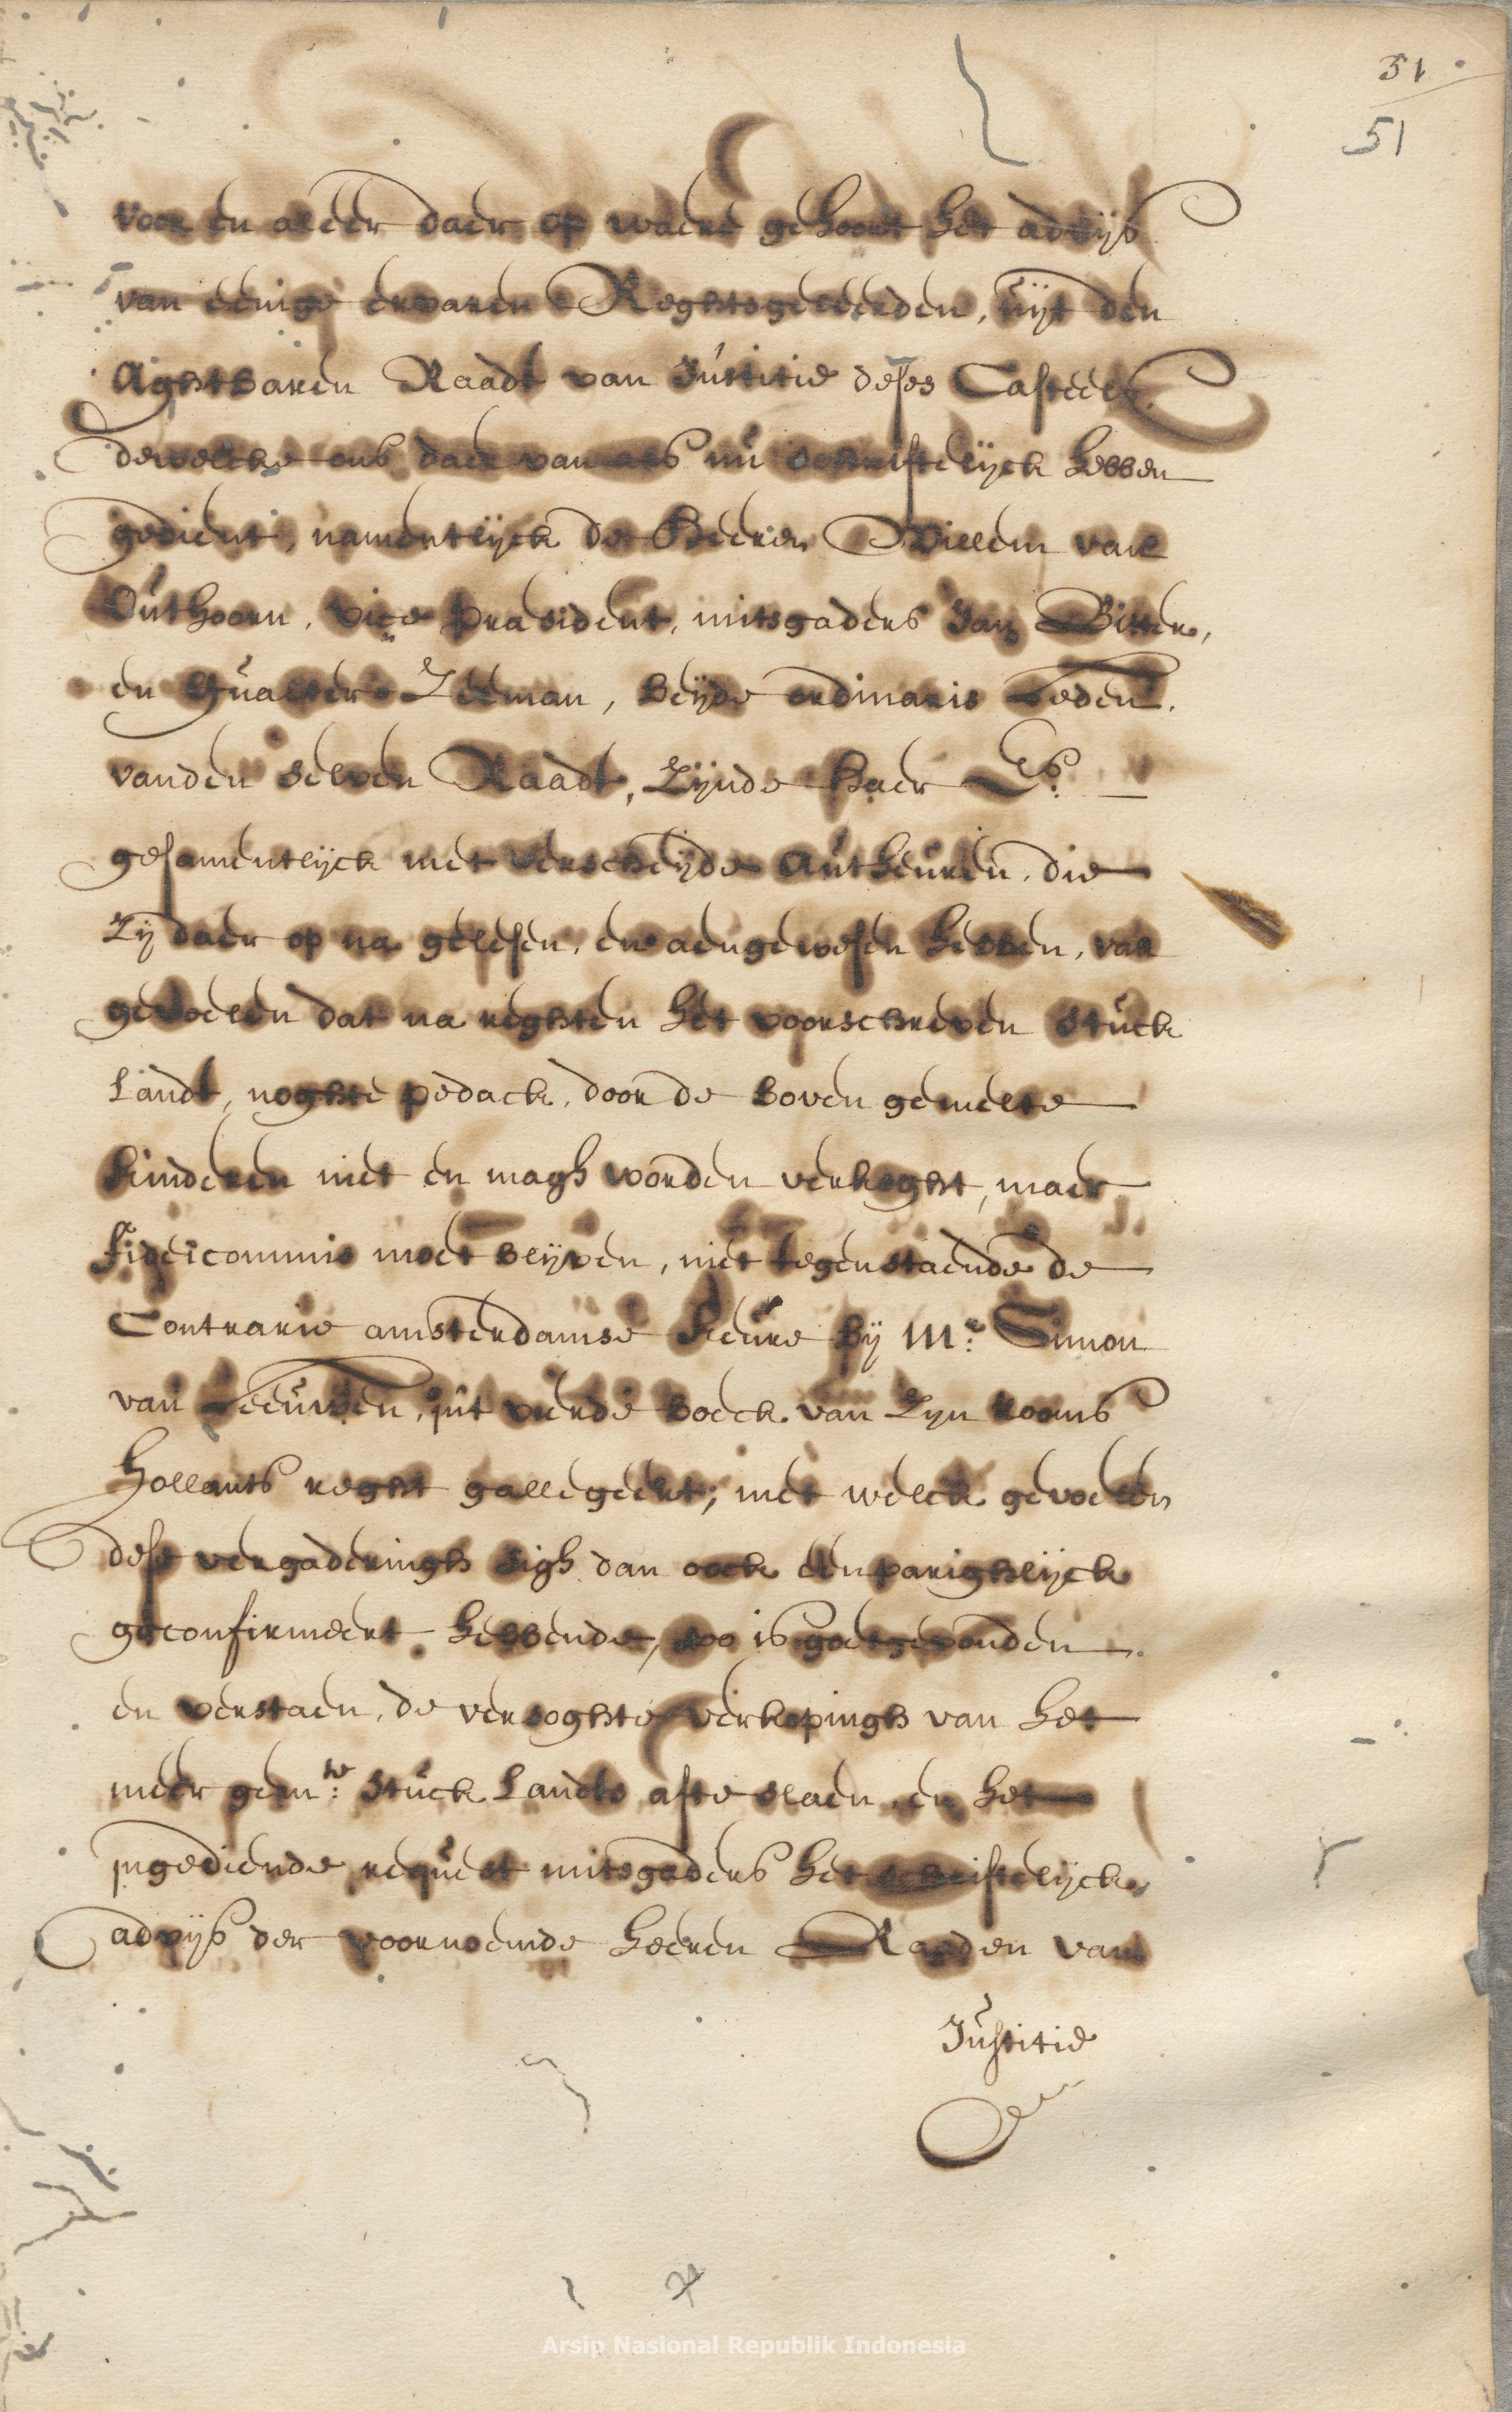 51
51
voor en aleer daer op waere gehoort het advijs
van eenige ervaren Reghtsgeleerden, uijt den
Aghtbaren Raadt van Justitie deses Casteels.
dewelcke ons daer van als nu schriftelijck hebben
gedient, namentlijck de Heeren Willem van
Outhoorn, vice president, mitsgaders Jan Bitter,
en Gualter Zeeman, beijde ordinaris Leden.
vanden selven Raadt, Zijnde haer Es.
gesamentlijck met verscheijde Autheuren, die
Zij daer op na gelesen, en aengewesen hebben, van
gevoelen dat na reghten het voorschreven stuck
Landt, noghte pedack, door de boven gemelte
kinderen niet en magh worden verkoght, maer
fideicommis moet blijven, niet tegenstaende de
Contrarie amsterdamse keure bij Mr: Simon
van Leeuwen, int vierde boeck van Zyn rooms
hollants reght gallegeert; met welck gevoelen
dese vergaderingh sigh dan oock eenparighlijck
geconfirmeert hebbende, soo is goetgevonden
en verstaen, de versoghte verkopingh van het
meer gemte: stuck Landts afte slaen, en het
ingediende request mitsgaders het schriftelijck
advijs der voornoemde heeren Raaden van
Justitie
Arsip Nasional Republik Indonesia